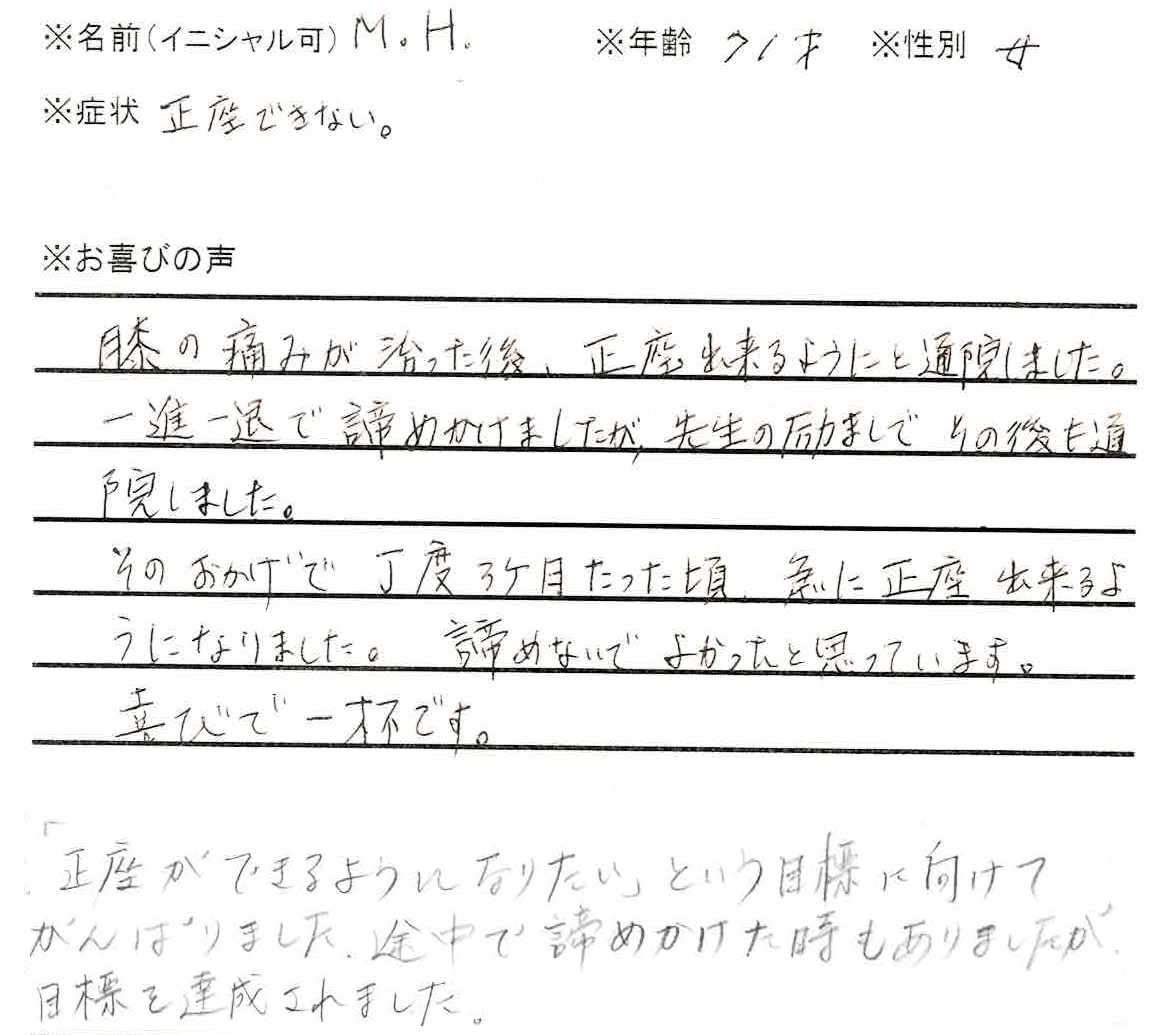 ※名前(イニシャル可) M.H. ※年齢 71才 ※性別 女
※症状 正座できない。
※お喜びの声
膝の痛みが治った後、正座出来るようにと通院しました。
一進一退で諦めかけましたが、先生の励ましでその後も通
院しました。
そのおかげで丁度3ケ月たった頃、急に正座出来るよ
うになりました。 諦めないでよかったと思っています。
喜びで一杯です。
「正座ができるようになりたい」という目標に向けて
がんばりました。途中で諦めかけた時もありましたが、
目標を達成されました。